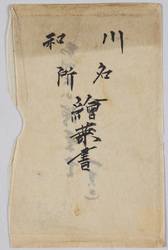 川和
名所
繪葉書